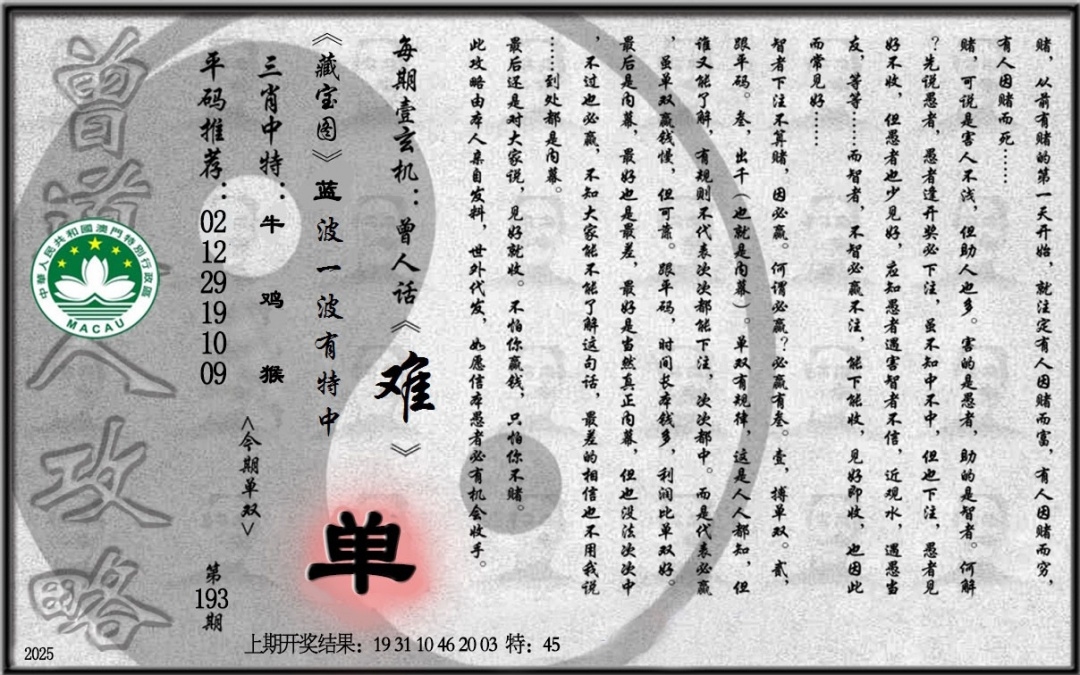 赌，从前有赌的第一天开始，就注定有人因赌而富，有人因赌而穷，
有人因赌而死……
赌，可说是害人不浅，但助人也多。害的是愚者，助的是智者。何解
？先说愚者，愚者逢开奖必下注，虽不知中不中，但也下注，愚者见
好不收，但愚者也少见好，应知愚者遇害智者不信，近观水，遇愚当
友，等等……而智者，不智必赢不注，能下能收，见好即收，也因此
而常见好……
智者下注不算赌，因必赢。何谓必赢？必赢有叁。壹，搏单双。贰，
跟平码。叁，出千（也就是内幕）。单双有规律，这是人人都知，但
谁又能了解，有规则不代表次次都能下注，次次都中。而是代表必赢
，虽单双赢钱慢，但可靠。跟平码，时间长本钱多，利润比单双好。
最后是内幕，最好也是最差，最好是当然真正内幕，但也没法次次中
，不过也必赢，不知大家能不能了解这句话，最差的相信也不用我说
……到处都是内幕。
最后还是对大家说，见好就收。不怕你赢钱，只怕你不赌。
此攻略由本人亲自发料，世外代发，如愿信本愚者必有机会收手。
每期壹玄机：曾人话《难》
《藏宝图》蓝波一波有特中
三肖中特：牛 鸡 猴
平码推荐：02 12 29 19 10 09
<今期单双>
单
第193期
曾道人攻略
中華人民共和國澳門特別行政區
MACAU
上期开奖结果：19 31 10 46 20 03 特：45
2025